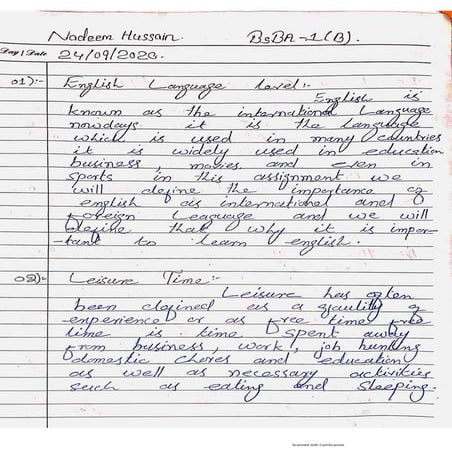 Nadeem Hussain. BsBA-1(B).
Day / Date 24/09/2020.
01):- English Language level:-
English is
known as the international Language
nowdays it is the language
which is used in many countries
it is widely used in education
business, movies and even in
sports in this assignment we
will define the importance of
english as international and
foreign Leaguage and we will
define that why it is impor-
tant to learn english.
02):- Leisure Time:-
Leisure has often
been defined as a quality of
experience or as free time free
time is time spent away
from business, work, job hunting
domestic chores and education
as well as necessary activities
such as eating and sleeping.
Scanned with CamScanner